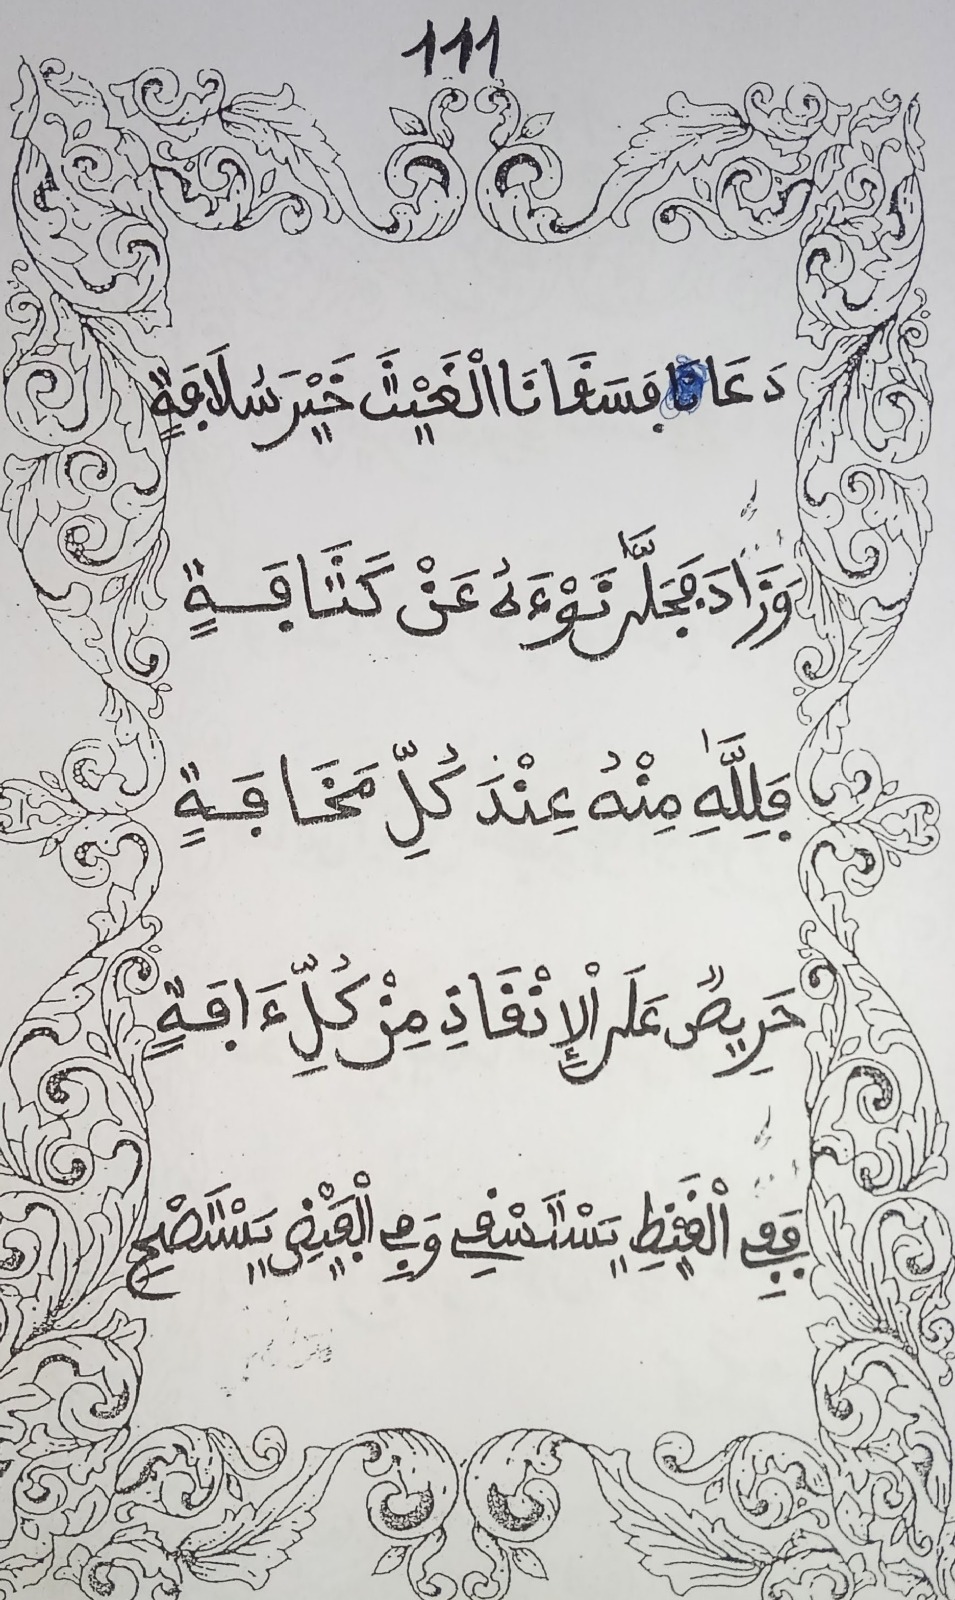 111
دَعَا فَسَقَانَا الْغَيْثَ خَيْرَ سُلَافَةٍ
وَزَادَ فَجَلَّى نَوْءَهُ عَنْ كَثَافَةٍ
فَلِلَّهِ مِنْهُ عِنْدَ كُلِّ مَخَافَةٍ
حَرِيصٌ عَلَى الْإِنْقَاذِ مِنْ كُلِّ ءَافَةٍ
فَفِي الْقَيْظِ يَسْتَسْقِي وَفِي الْفَيْضِ يَسْتَصْحِي